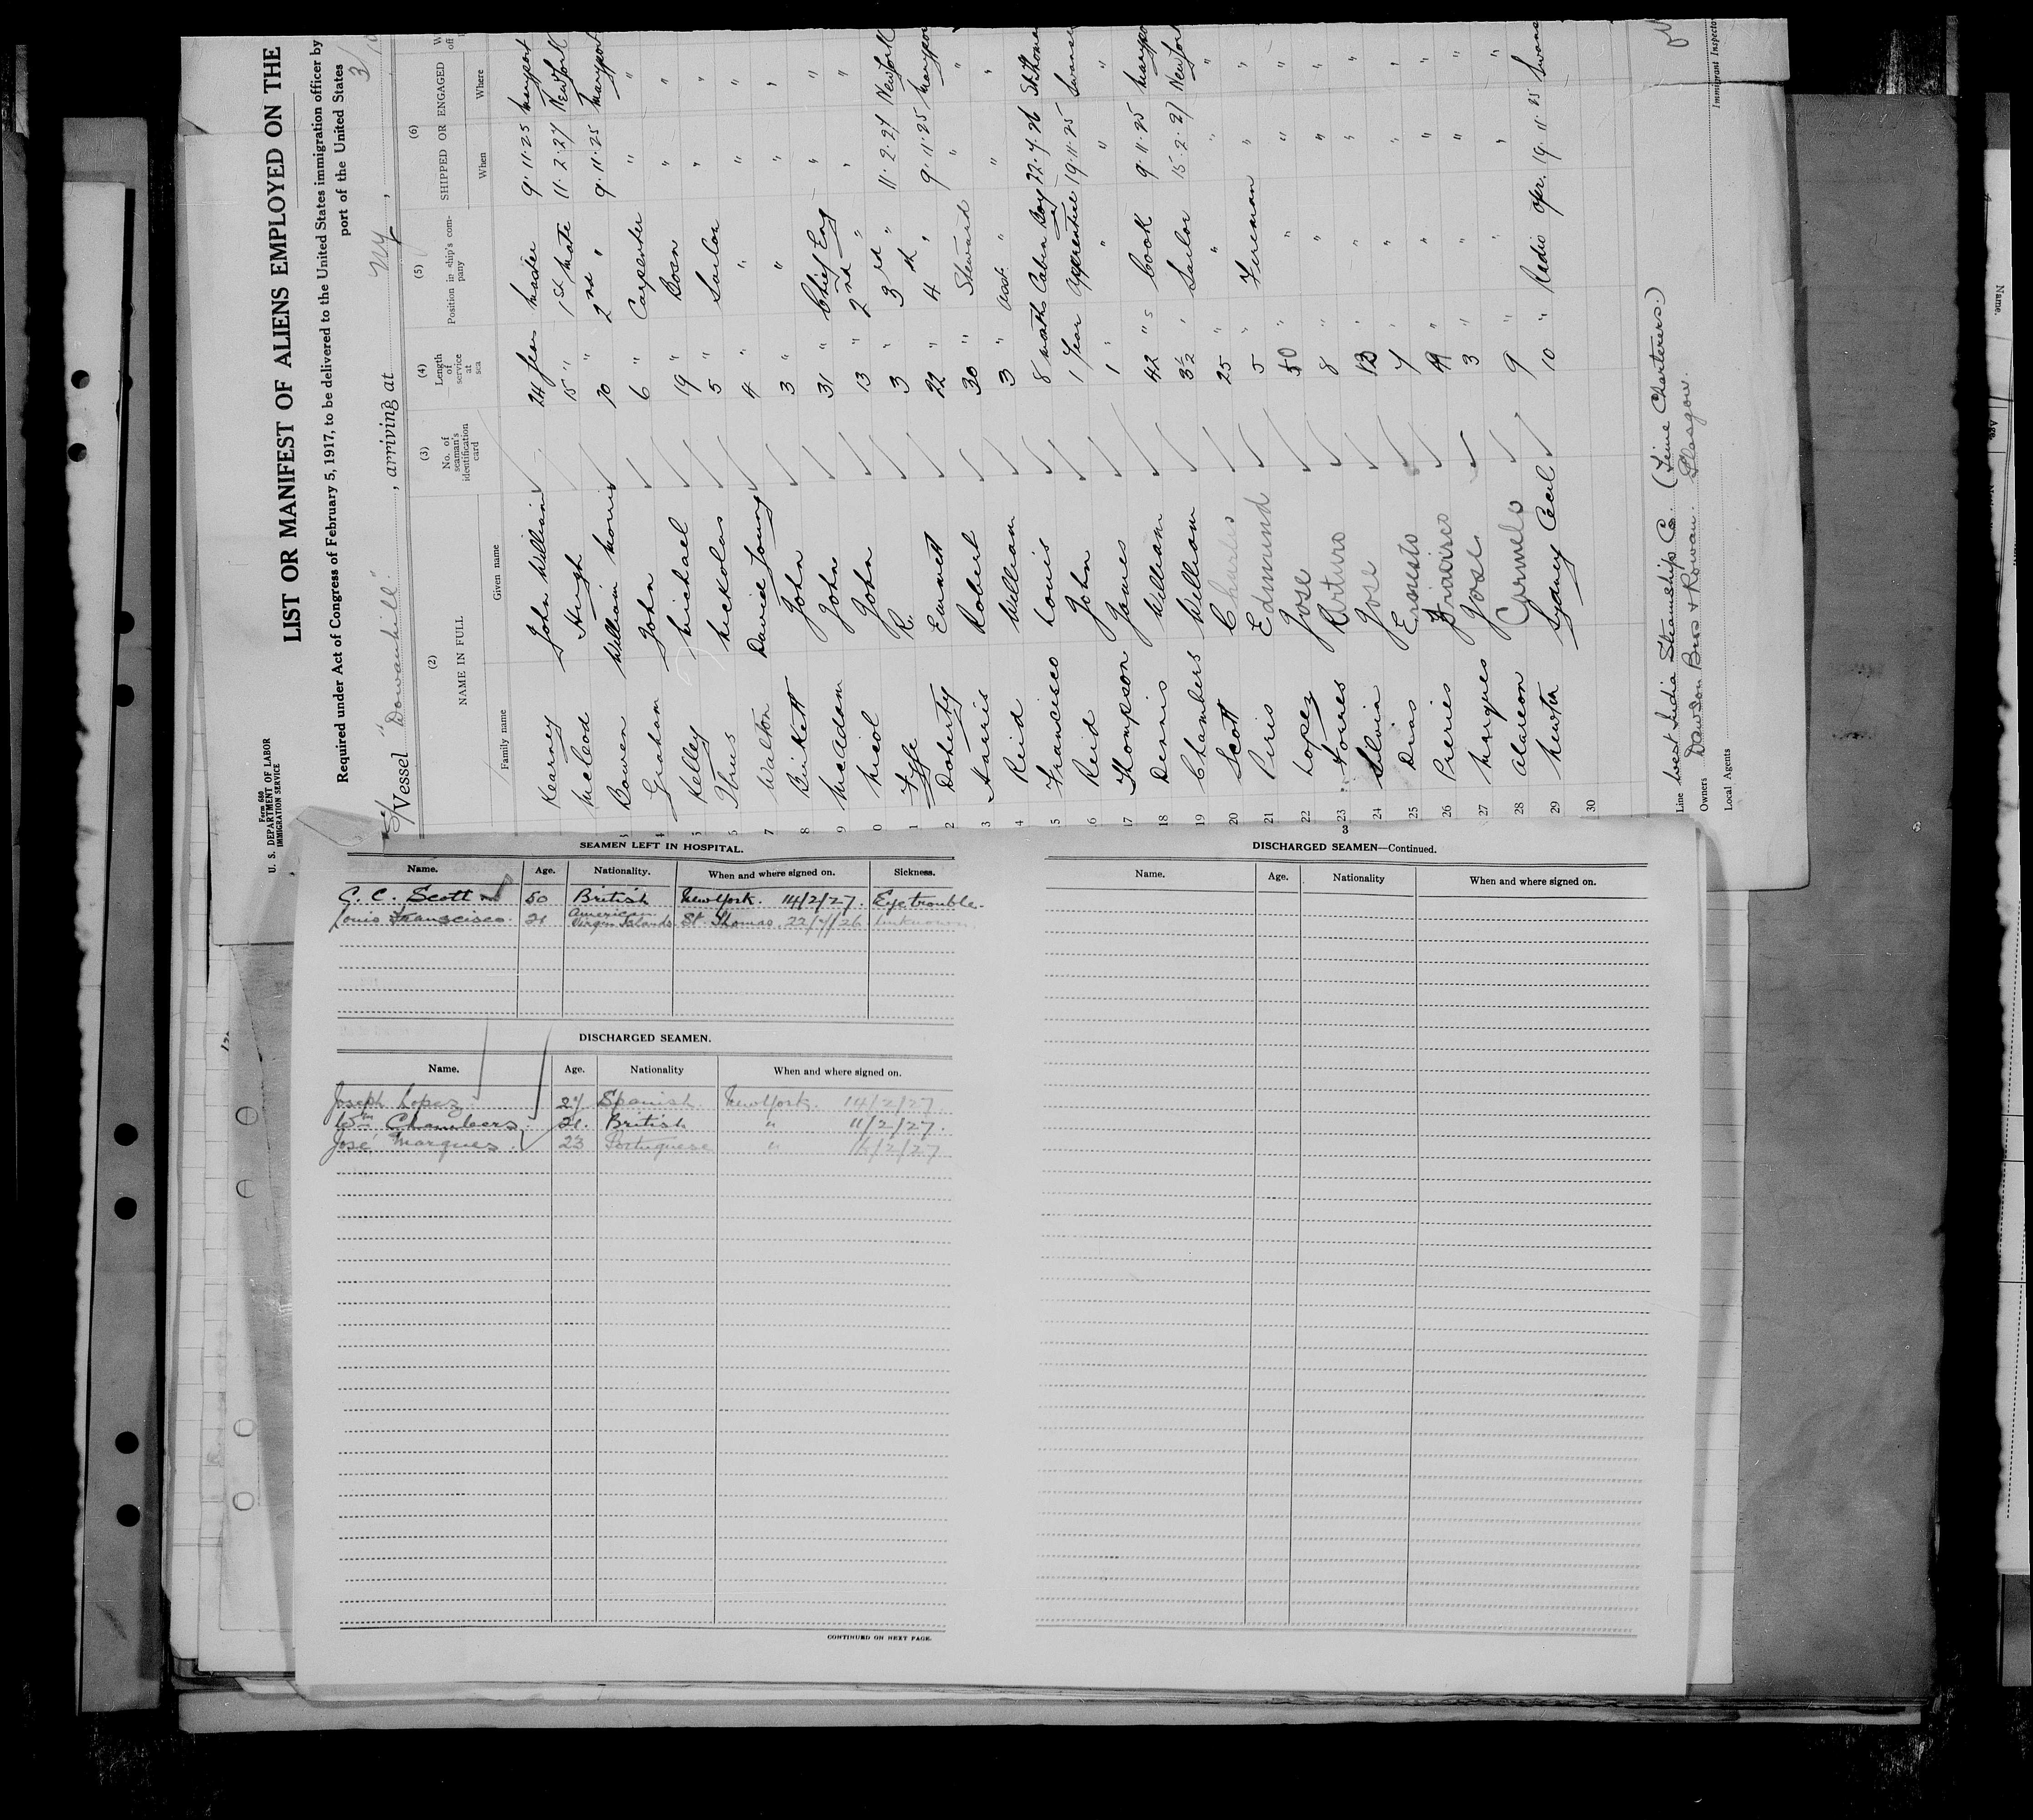 Form 680
U. S. DEPARTMENT OF LABOR
IMMIGRATION SERVICE
LIST OR MANIFEST OF ALIENS EMPLOYED ON THE
Required under Act of Congress of February 5, 1917, to be delivered to the United States immigration officer by
port of the United States
Vessel "Dowanhill" , arriving at NY ,
(2) (3) (4) (5) (6)
NAME IN FULL No. of seaman's identification card Length of service at sea Position in ship's company SHIPPED OR ENGAGED
Family name Given name When Where
Kearney John William 24 years Master 9.11.25 Maryport
McLeod Hugh 15 " 1st Mate 11.2.27 New York
3 Bowen William Morris 10 " 2nd " 9.11.25 Maryport
4 Graham John 6 " Carpenter " "
5 Kelley Michael 19 " Bosn " "
6 Nickolas 5 " Sailor " "
7 Walton David Young 4 " " " "
8 Birkett John 3 " " " "
9 McAdam John 31 " Chief Eng " "
0 Nicol John 13 " 2nd " " "
1 Fyffe R. 3 " 3rd " 11.2.27 New York
2 Doherty Emmett 22 " 4th " 9.11.25 Maryport
3 Harris Robert 30 " Steward " "
4 Reid William 3 " asst. " " "
5 Francisco Louis 8 months Cabin Boy 22.7.26 St. Thomas
6 Reid John 1 Year Apprentice 19.11.25 Swansea
17 Thompson James 1 " " " "
18 Dennis William 42 " s Cook 9.11.25 Marypo
19 Chambers William 3½ " Sailor 15.2.27 New York
20 Scott Charles 25 " " " "
21 Piris Edmund 5 " Fireman " "
22 Lopez Jose 10 " " " "
23 Torres Arturo 8 " " " "
24 Silvia Jose " " " "
25 Dinas Ernesto 7 " " " "
26 Pieries Francisco " " " "
27 Marques Jose 3 " " " "
28 Alarcon Carmelo 9 " " " "
29 Newton Sydney Cecil 10 " Radio Opr. 19.11.25 Swans
30
Line West India Steamship Co. (Time Charterers.)
Owners Dawson Bros & Rowan. Glasgow.
Local Agents
Immigrant Inspector
SEAMEN LEFT IN HOSPITAL.
Name. Age. Nationality. When and where signed on. Sickness.
C. C. Scott 50 British New York. 14/2/27. Eye trouble.
Louis Franscisco. 21 American Virgin Islands St. Thomas. 22/7/26 Unknown
DISCHARGED SEAMEN.
Name. Age. Nationality When and where signed on.
Joseph Lopez 27 Spanish. New York. 14/2/27.
Wm Chambers. 21. British " 11/2/27.
José Marques. 23 Portuguese "
CONTINUED ON NEXT PAGE.
3
DISCHARGED SEAMEN—Continued.
Name. Age. Nationality When and where signed on.
Name.
Age.